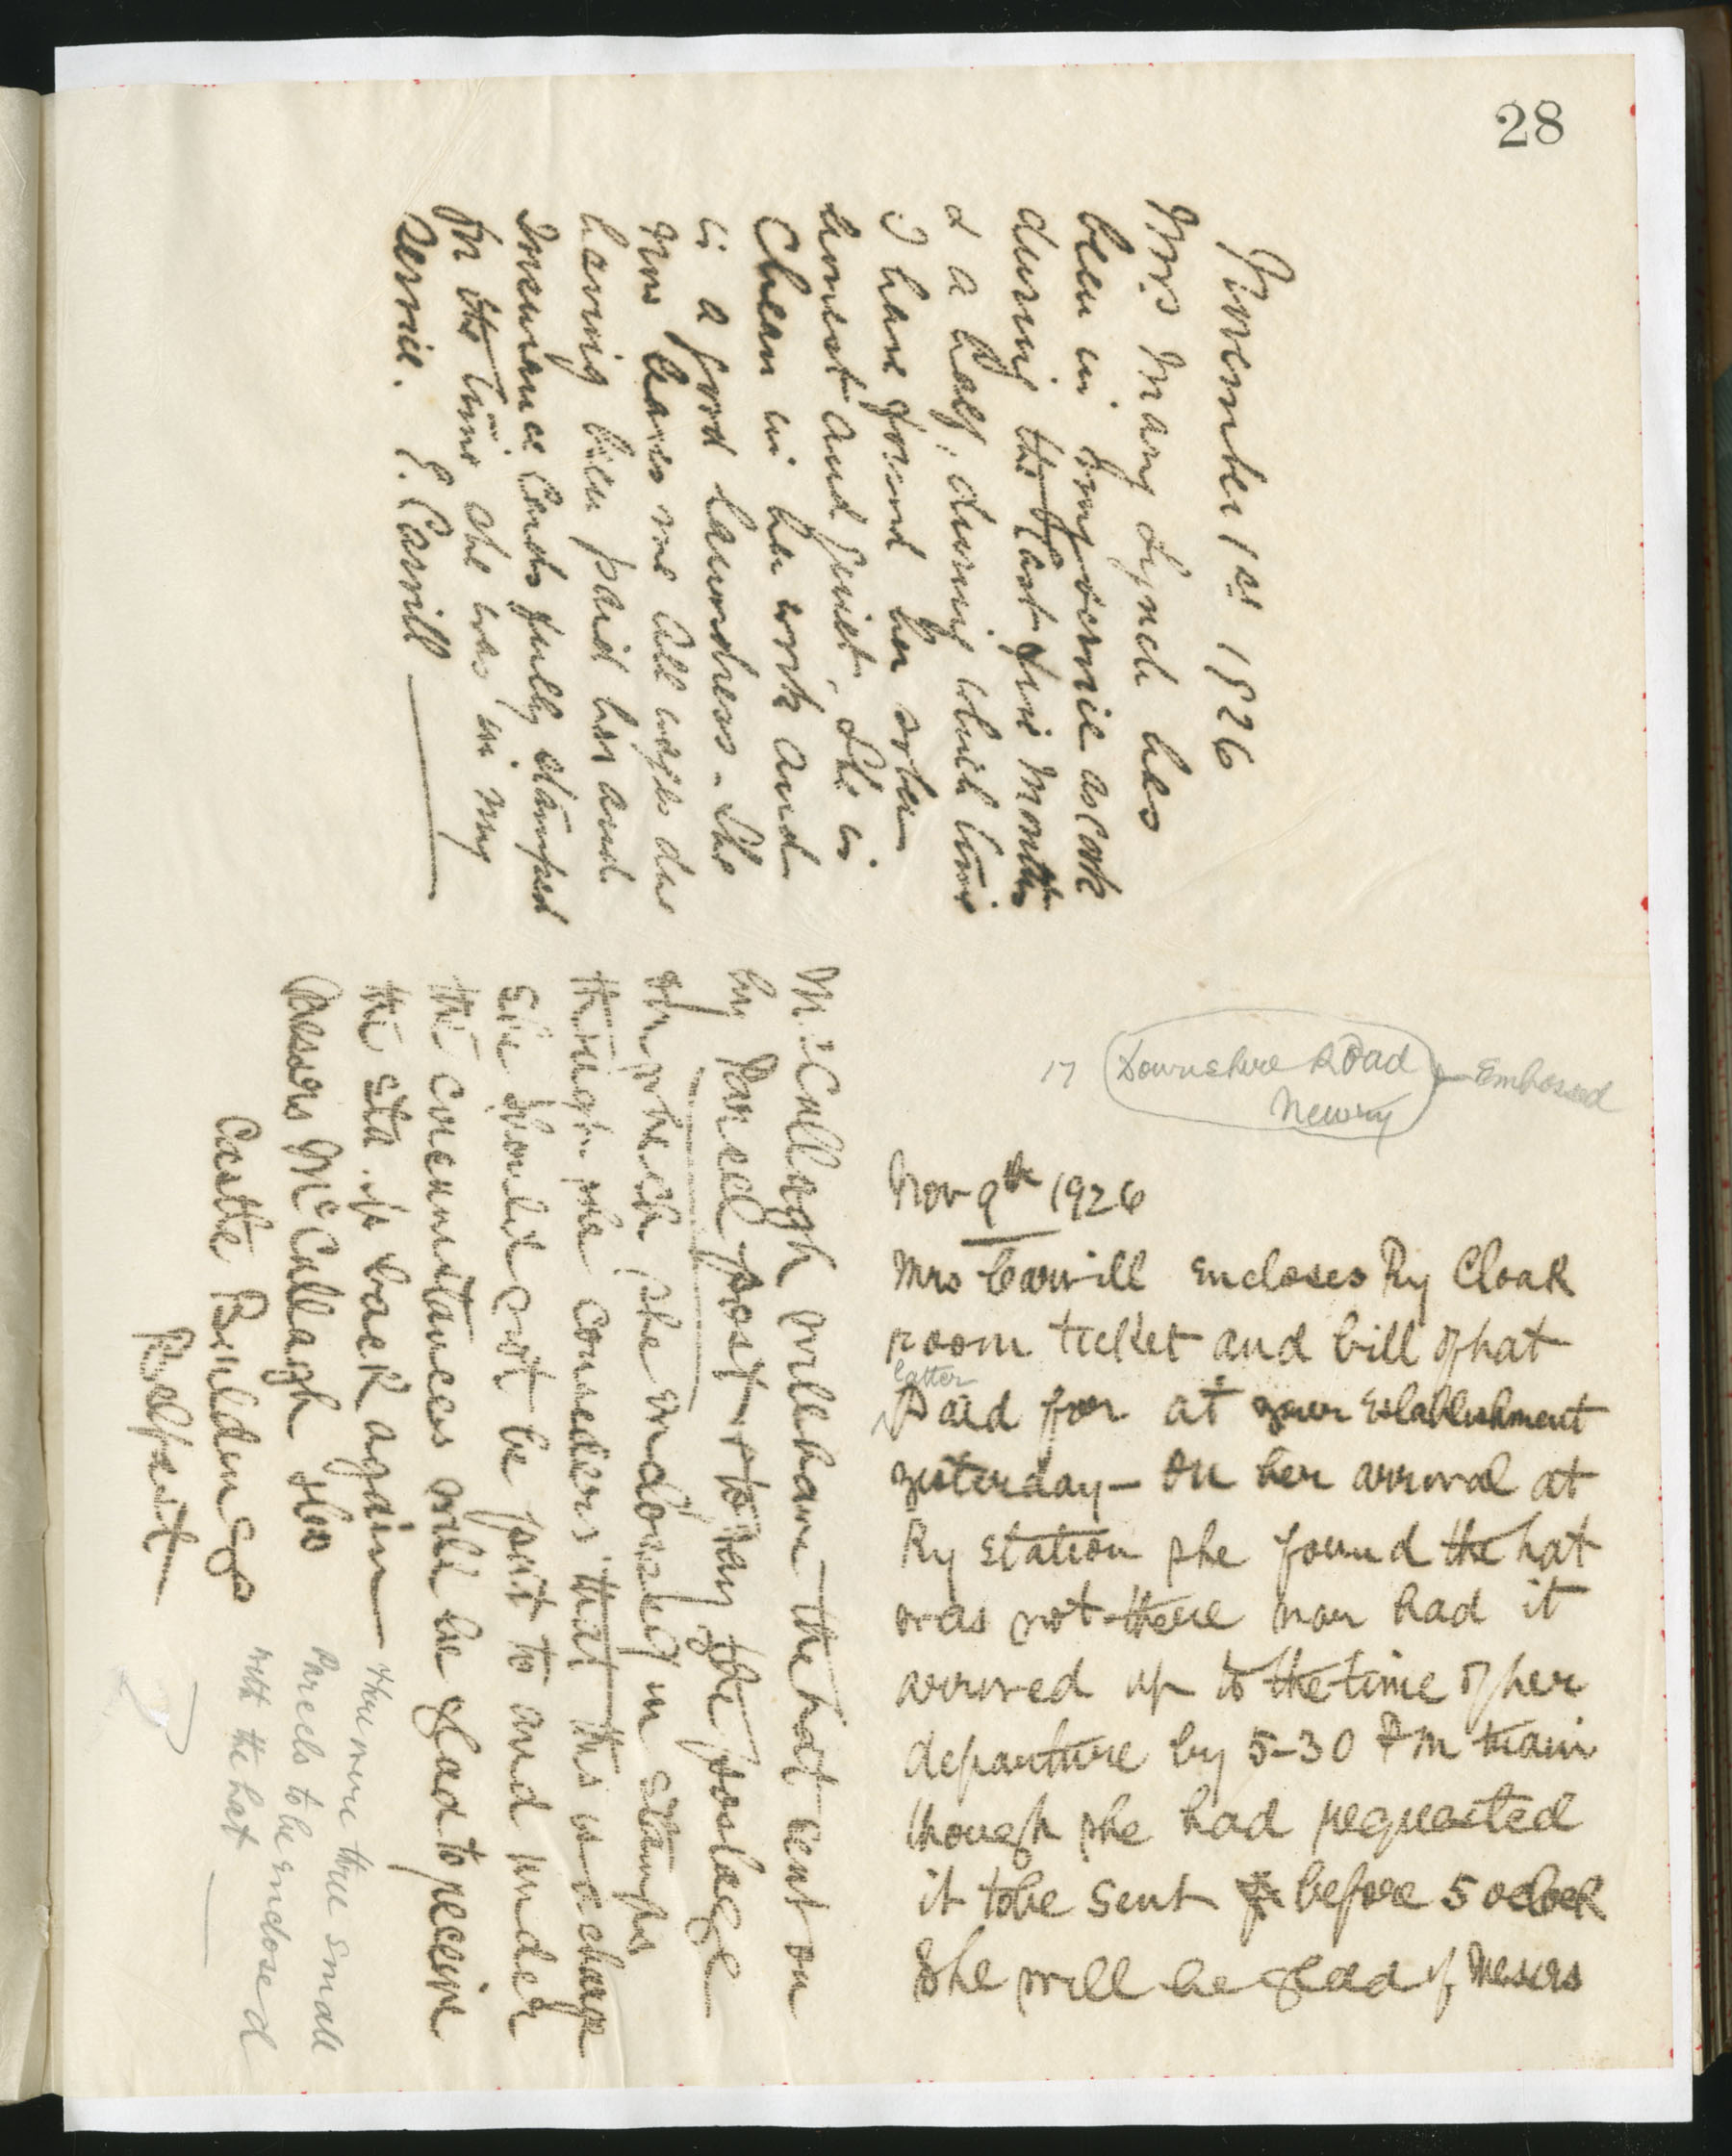 28
November 1st 1926
Mrs Mary Lynch has
been in my service as cook
during the last five months
& a half, during which time
I have found her sober
honest and quiet. She is
Clean in her work and
is a good laundress. She
now leaves me all wages due
having been paid her and
Insurance Cards fully stamped
for the time she was in my
service. E. Carvill
17 Downshire Road Embossed
Newry
Nov 9th 1926
Mrs Carvill encloses Ry Cloak
room ticket and bill of hat
latter
Paid for at your Establishment
yesterday – On her arrival at
Ry station she found the hat
was not there nor had it
arrived up to the time of her
departure by 5-30 PM train
though she had requested
it to be sent before 5 oclock
She will be glad if Messrs
McCullagh will have the hat sent on
by Parcel post & to pay the postage
of which she encloses in stamps
though she considers that this is a charge
she should not be put to and under
the circumstances will be glad to receive
the sta. ps back again
Messrs McCullagh
Castle Buildings
Belfast
There were three small
Parcels to be enclosed
with the hat